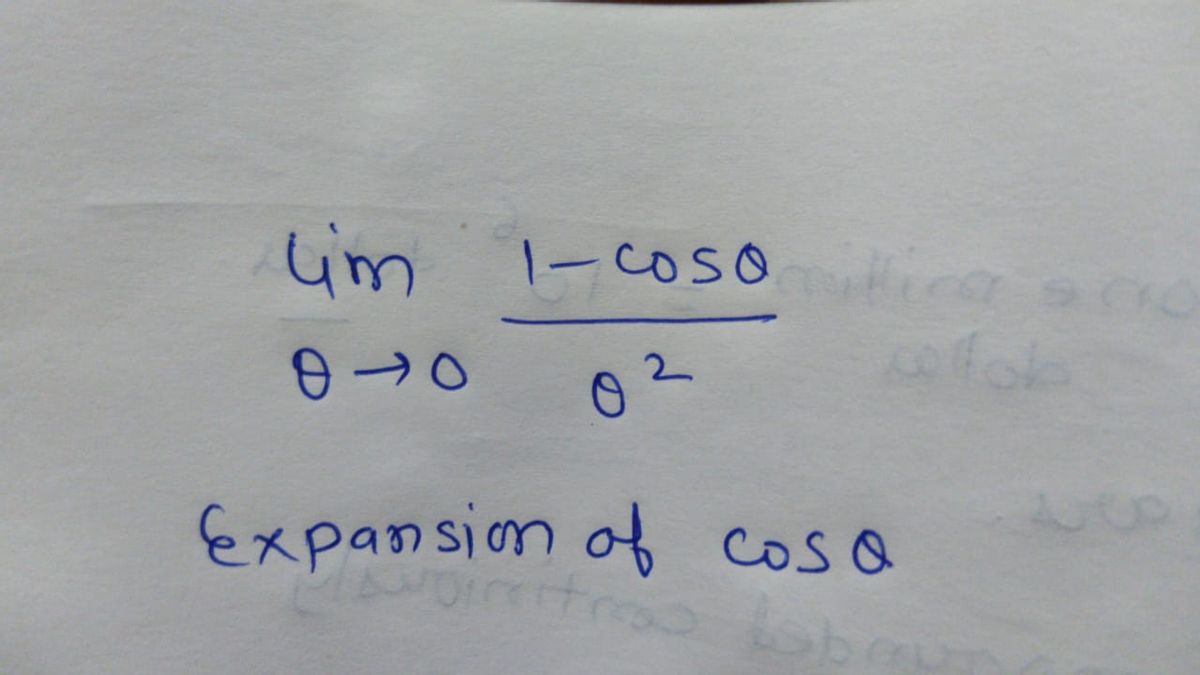 lim 1-cosθ
θ→0 θ²
Expansion of cosθ